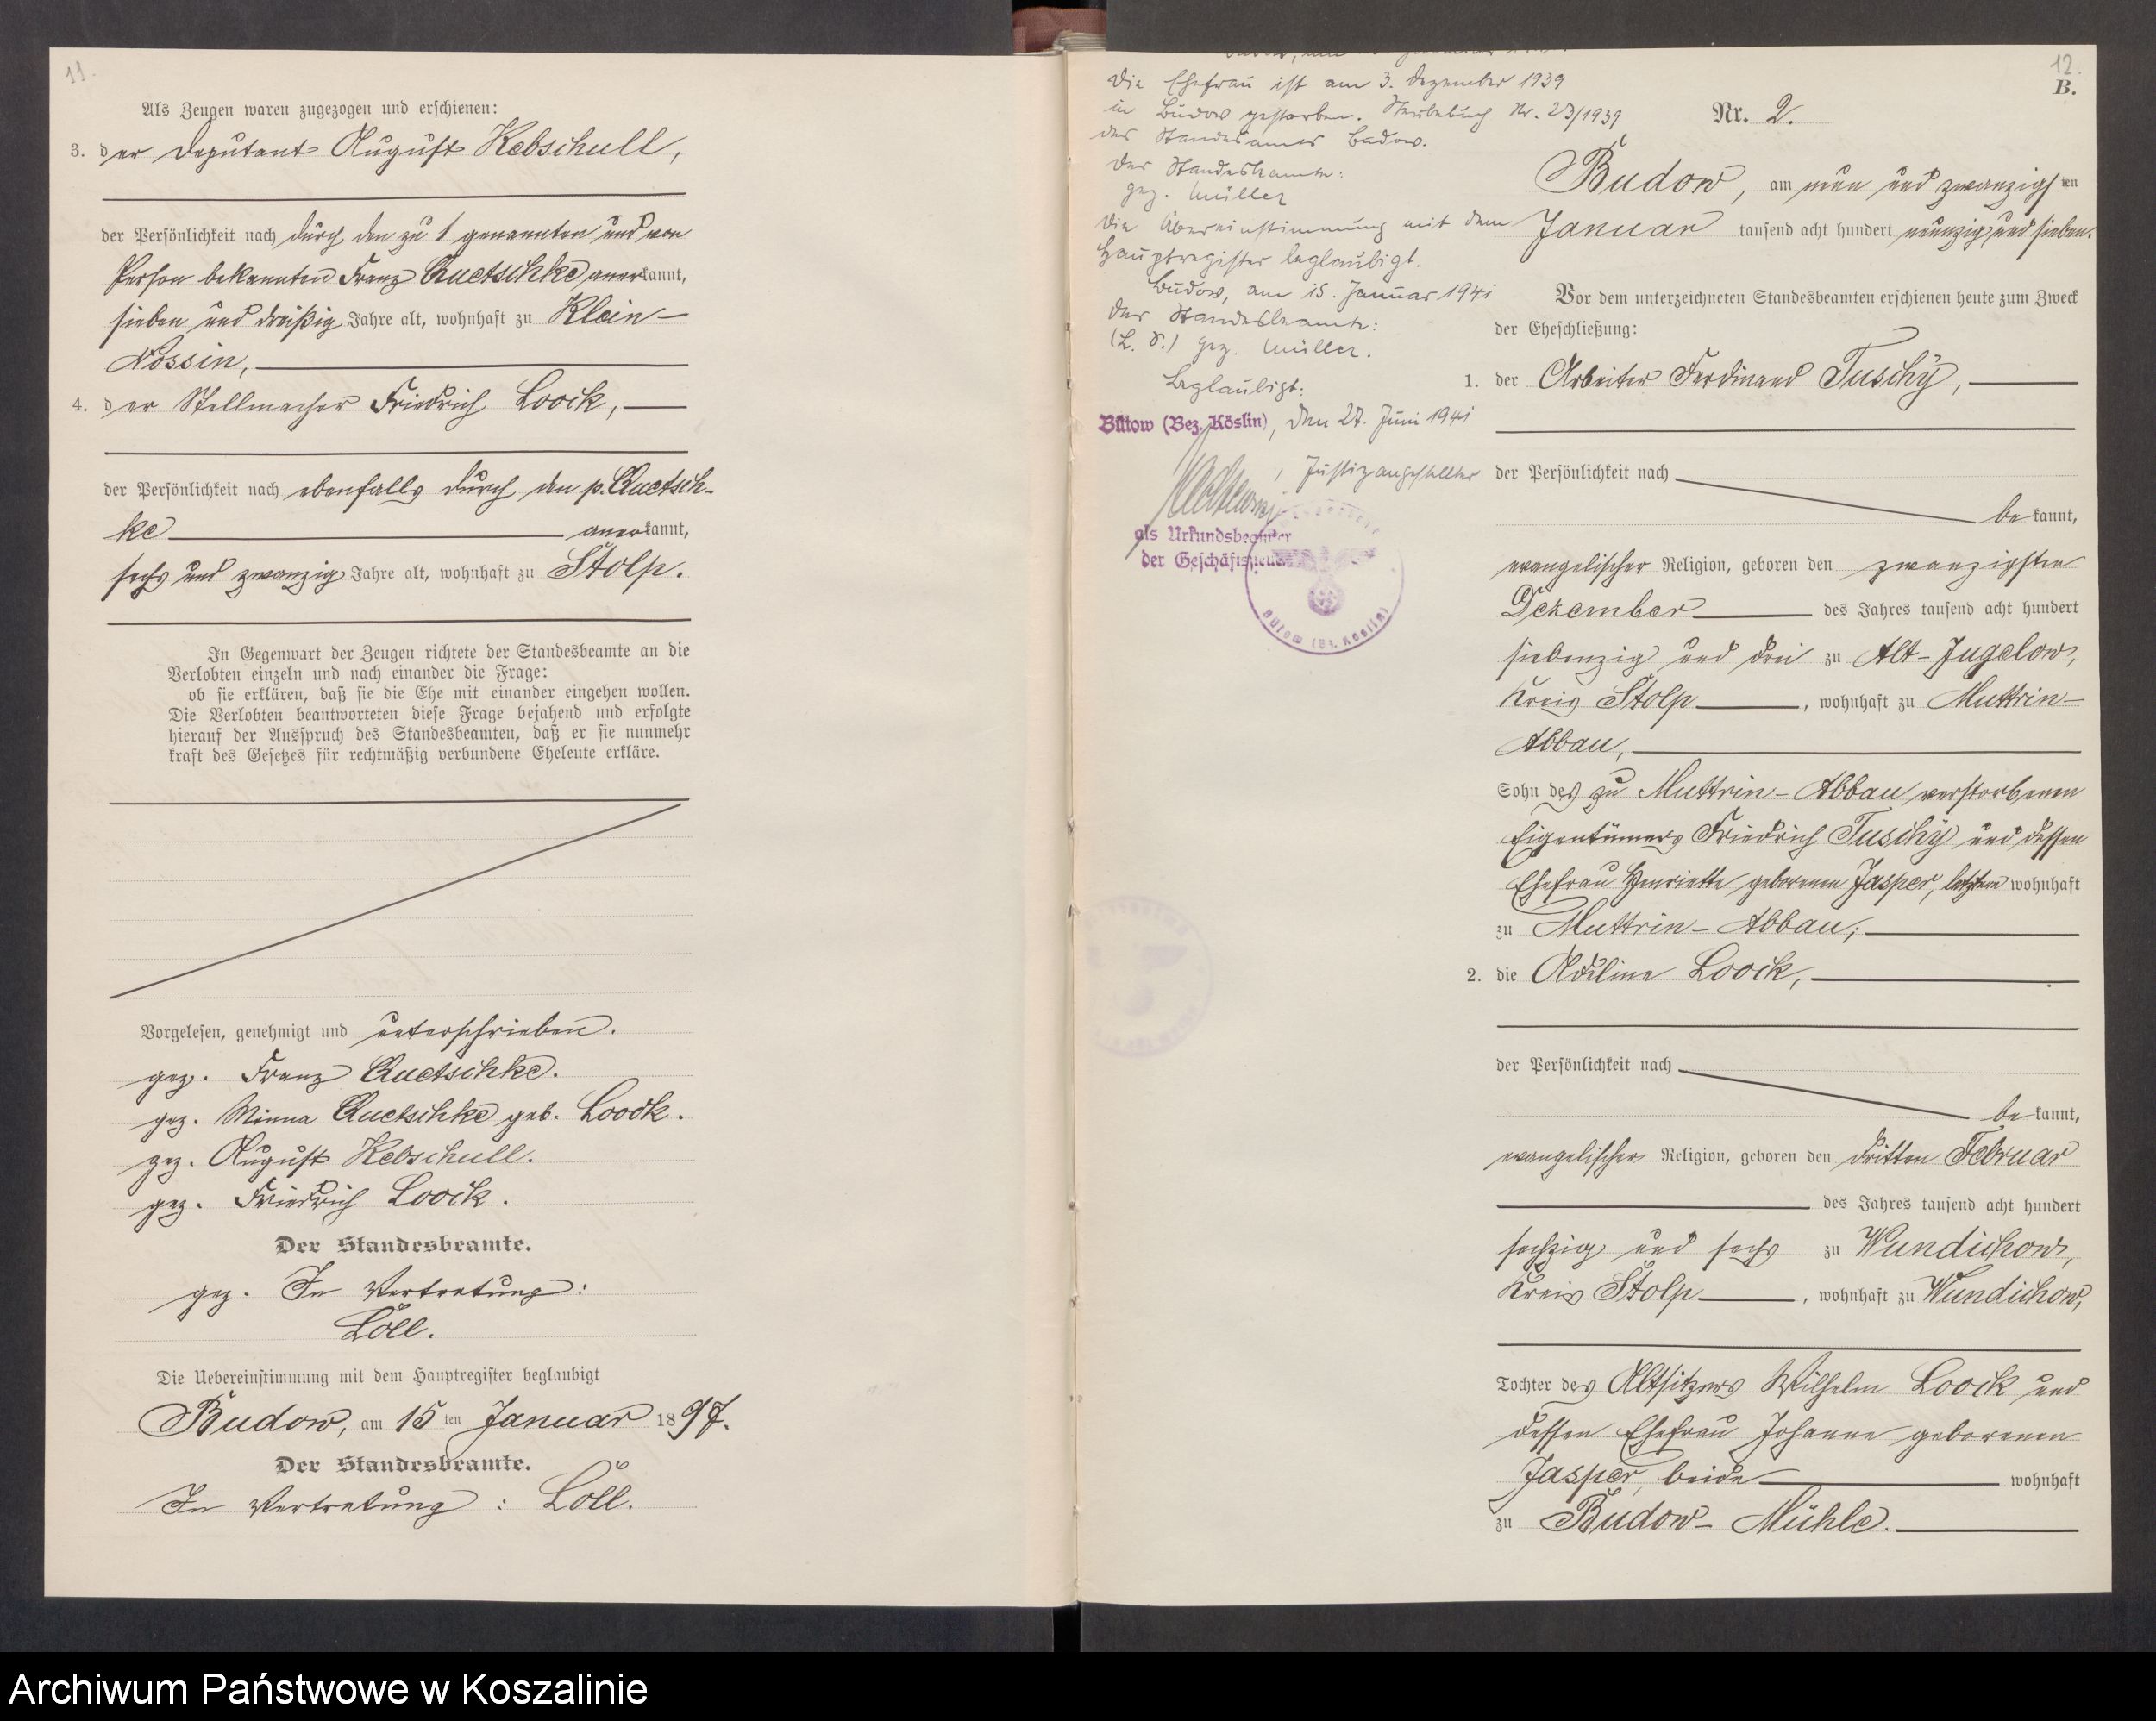 11.
Als Zeugen waren zugezogen und erschienen:
3. der Deputant August Kebschull,
der Persönlichkeit nach durch den zu 1 genannten und von
Person bekannten Franz Quetschke anerkannt,
sieben und dreißig Jahre alt, wohnhaft zu Klein-
Nossin,
4. der Stellmacher Friedrich Loock,
der Persönlichkeit nach ebenfalls durch den p. Quetsch-
ke anerkannt,
sechs und zwanzig Jahre alt, wohnhaft zu Stolp.
In Gegenwart der Zeugen richtete der Standesbeamte an die
Verlobten einzeln und nach einander die Frage:
ob sie erklären, daß sie die Ehe mit einander eingehen wollen.
Die Verlobten beantworteten diese Frage bejahend und erfolgte
hierauf der Ausspruch des Standesbeamten, daß er sie nunmehr
kraft des Gesetzes für rechtmäßig verbundene Eheleute erkläre.
Vorgelesen, genehmigt und unterschrieben.
gez. Franz Quetschke.
gez. Minna Quetschke geb. Loock.
gez. August Kebschull.
gez. Friedrich Loock.
Der Standesbeamte.
gez. In Vertretung:
Löll.
Die Uebereinstimmung mit dem Hauptregister beglaubigt
Budow, am 15ten Januar 1897.
Der Standesbeamte.
In Vertretung: Löll.
Die Ehefrau ist am 3. Dezember 1939
in Budow gestorben. Sterbebuch Nr. 23/1939
des Standesamts Budow.
Der Standesbeamte:
gez. Müller
Die Übereinstimmung mit dem
Hauptregister beglaubigt.
Budow, am 15. Januar 1941
Der Standesbeamte:
(L. S.) gez. Müller.
Beglaubigt:
Bütow (Bez. Köslin), den 27. Juni 1941
, Justizangestellter
als Urkundsbeamter
der Geschäftsstelle
Bütow (Bz. Köslin)
12.
B.
Nr. 2.
Budow, am neun und zwanzigsten
Januar tausend acht hundert neunzig und sieben.
Vor dem unterzeichneten Standesbeamten erschienen heute zum Zweck
der Eheschließung:
1. der Arbeiter Ferdinand Tuschy,
der Persönlichkeit nach
bekannt,
evangelischer Religion, geboren den zwanzigsten
Dezember des Jahres tausend acht hundert
siebenzig und drei zu Alt-Jugelow,
Kreis Stolp, wohnhaft zu Muttrin-
Abbau,
Sohn des zu Muttrin-Abbau verstorbenen
Eigentümers Friedrich Tuschy und dessen
Ehefrau Henriette geborenen Jasper, letztere wohnhaft
zu Muttrin-Abbau;
2. die Adeline Loock,
der Persönlichkeit nach
bekannt,
evangelischer Religion, geboren den dritten Februar
des Jahres tausend acht hundert
sechzig und sechs zu Wundichow,
Kreis Stolp, wohnhaft zu Wundichow,
Tochter des Altsitzers Wilhelm Loock und
dessen Ehefrau Johanne geborenen
Jasper, beide wohnhaft
zu Budow-Mühle.
Archiwum Państwowe w Koszalinie